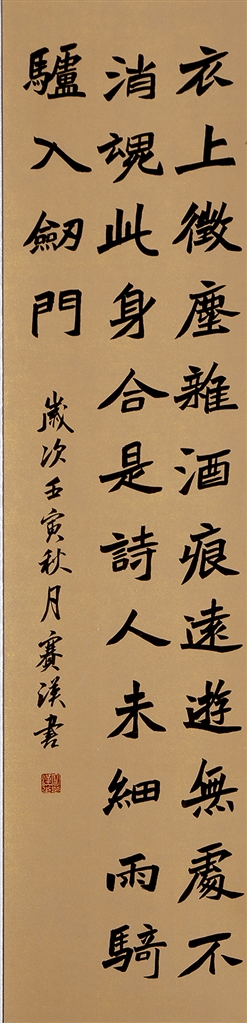 衣上徵塵雜酒痕遠遊無處不
消魂此身合是詩人未細雨騎
驢入劒門
歲次壬寅秋月賽漢書